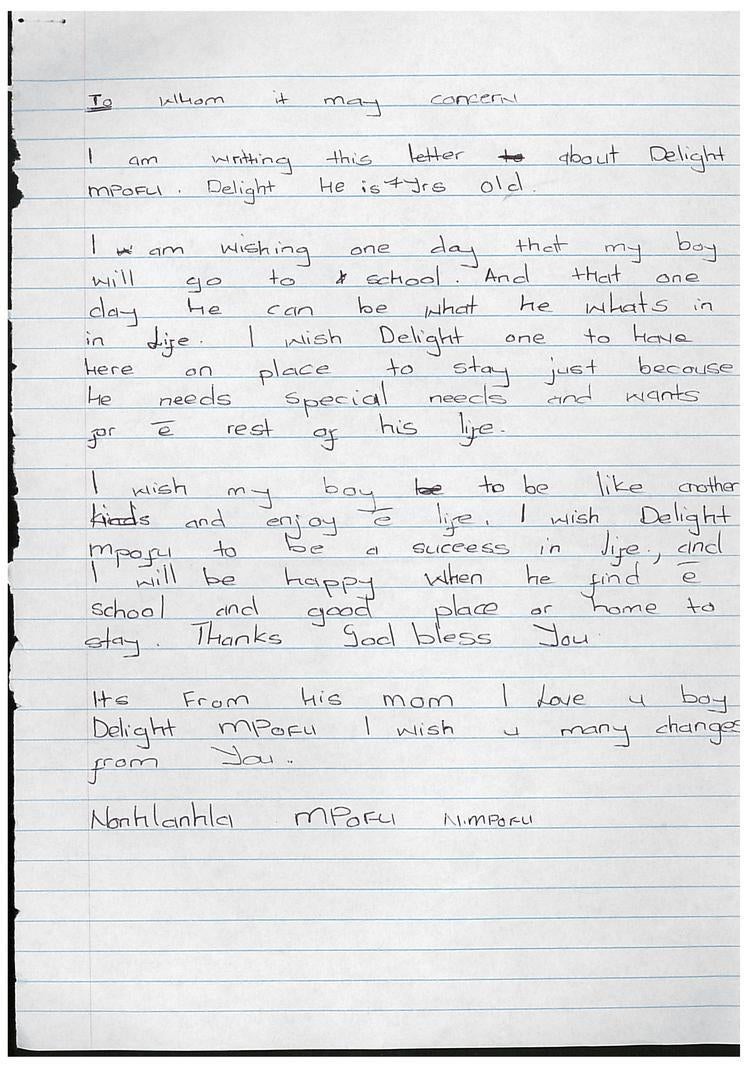 To Whom it may concern
I am writting this letter to about Delight
MPOFU. Delight He is 7yrs old.
I w am wishing one day that my boy
will go to school. And that one
day He can be what he whats in
in Life. I wish Delight one to Have
Here on place to stay just because
He needs special needs and wants
for ē rest of his life.
I wish my boy be to be like another
kinds and enjoy ē life. I wish Delight
mpofu to be a success in life, and
I will be happy when he find ē
school and good place or home to
stay. THanks God bless You.
Its From His mom I Love u boy
Delight MPOFU I wish u many changes
from You..
Nonhlanhla MPOFU N.MPOFU